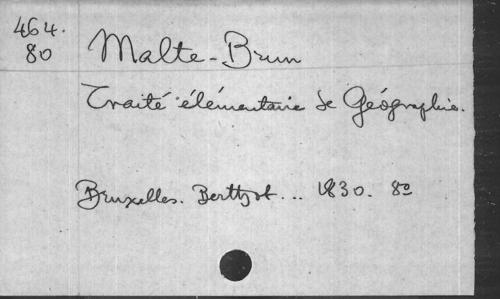 464.
80
Malte-Brun
Traité élémentaire de Géographie.
Bruxelles. Berthot... 1830. 8º